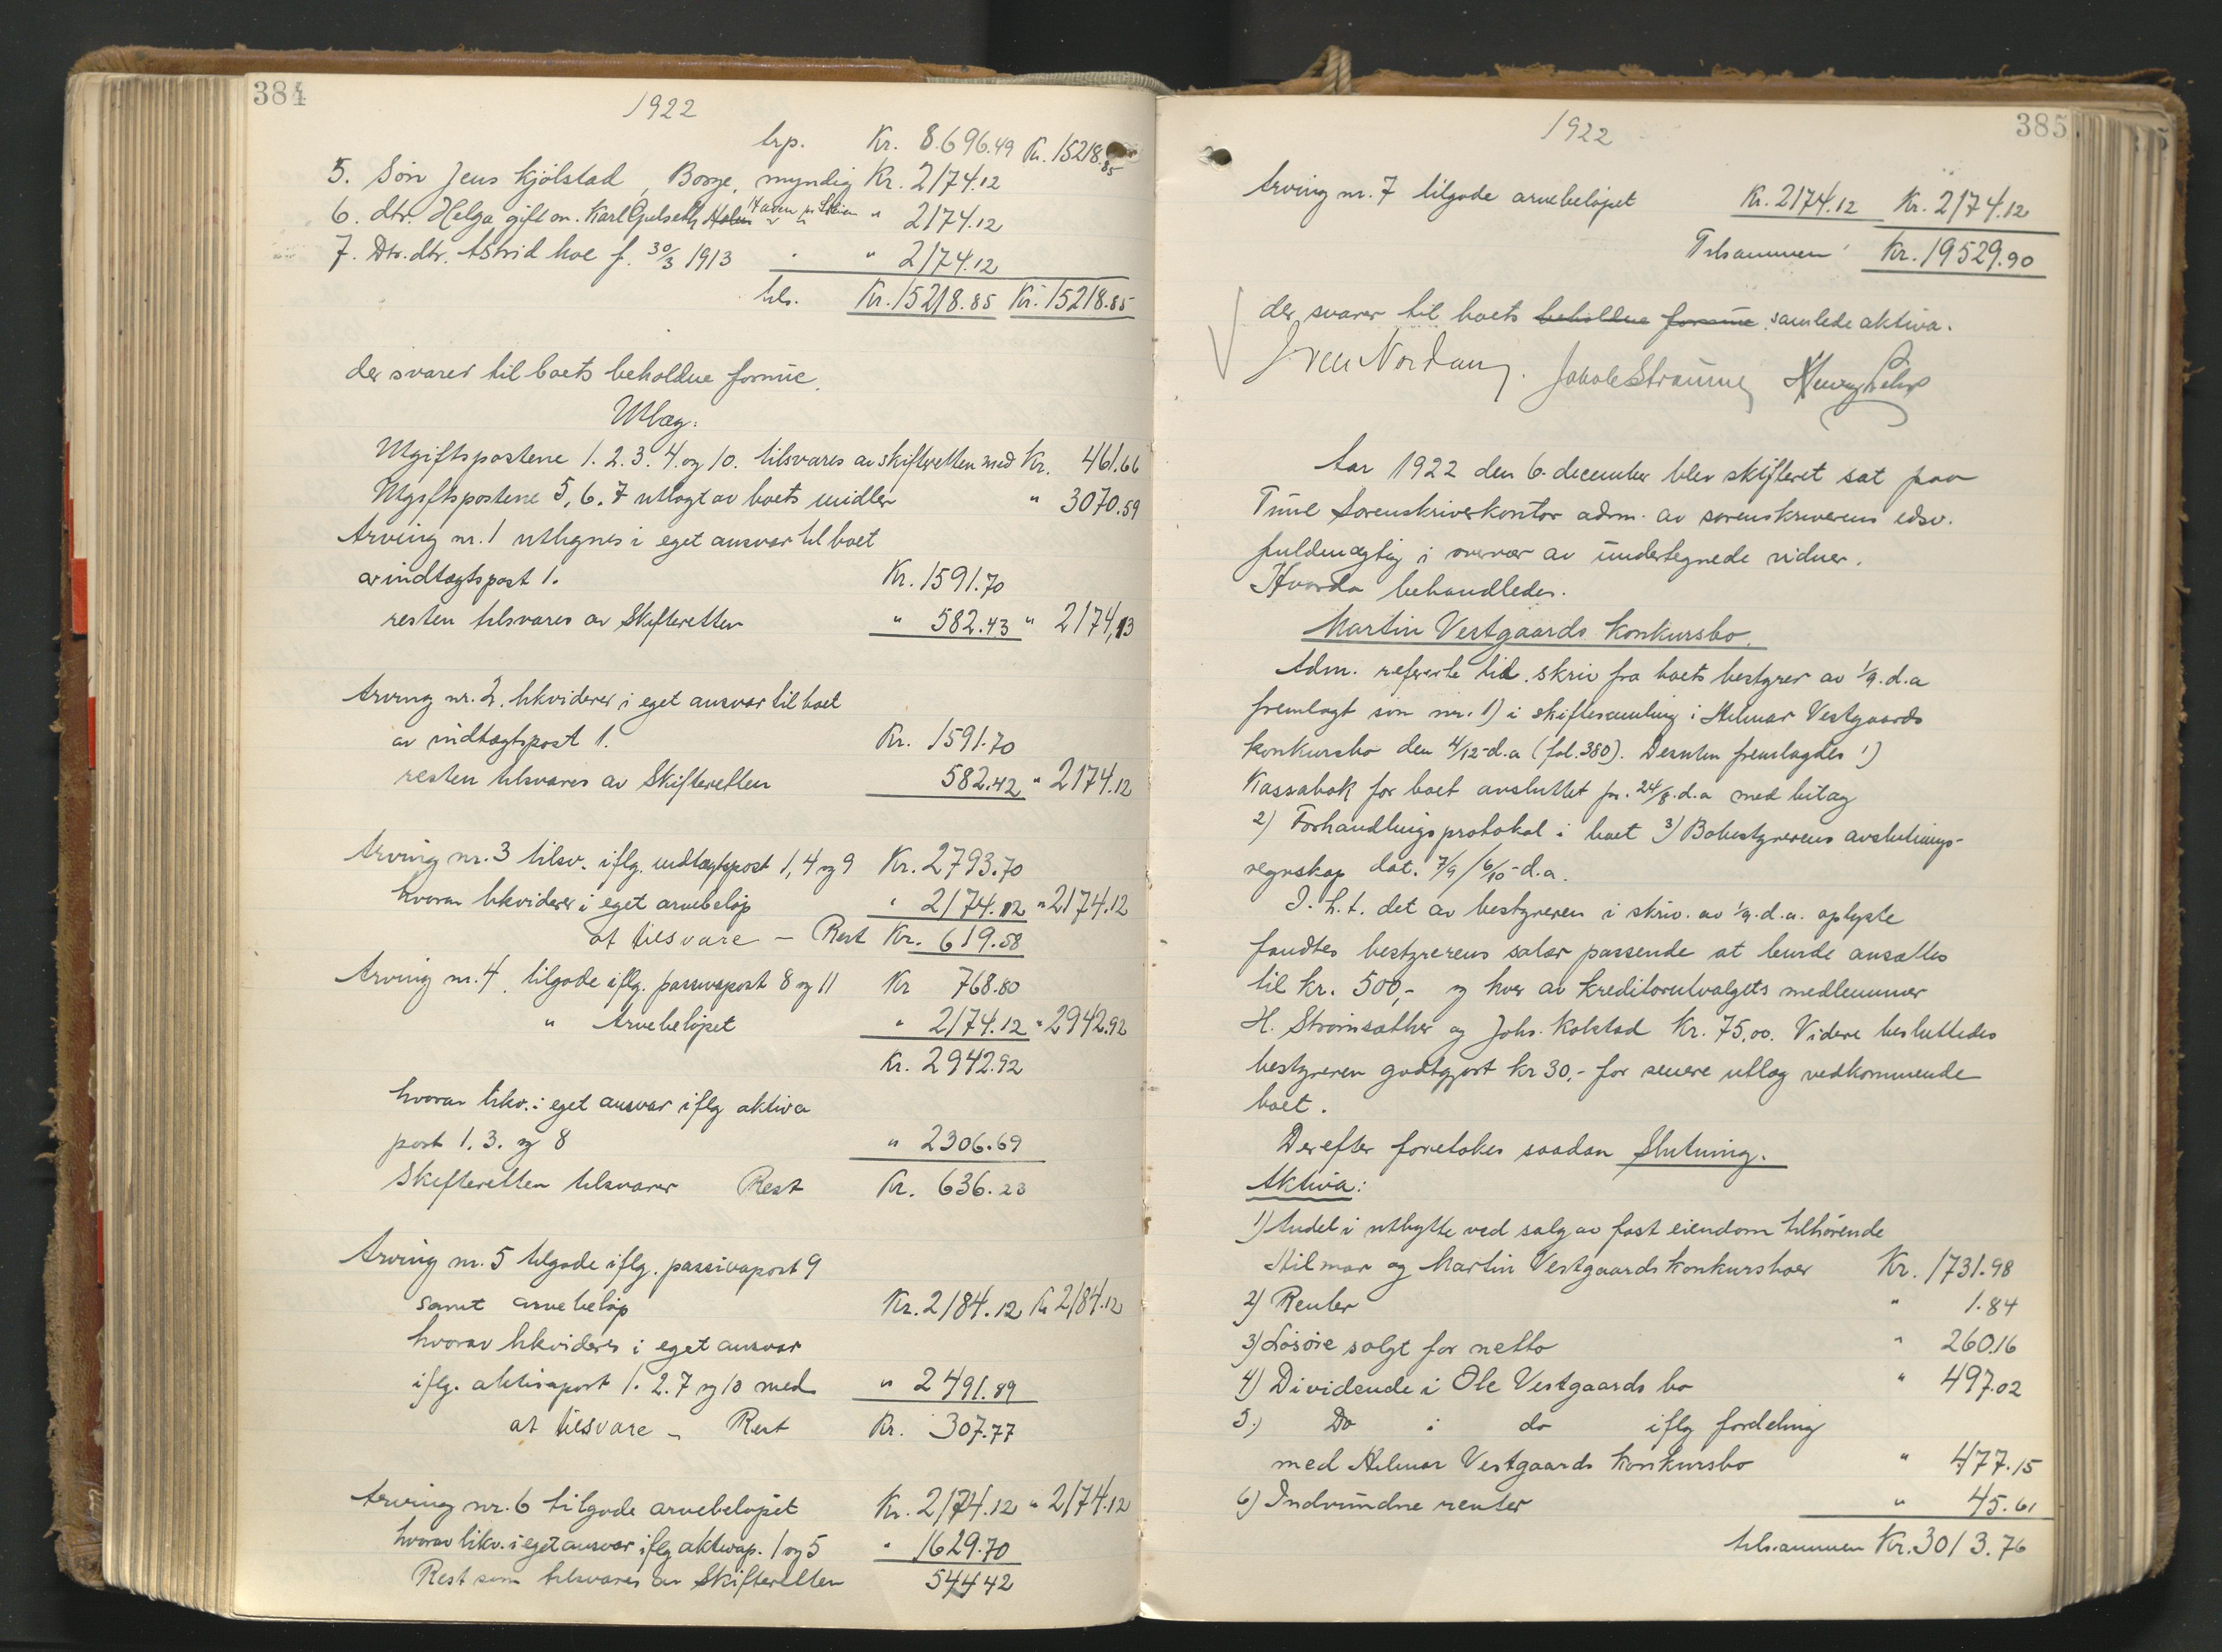 384
1922
trp. Kr. 8.696.49 Kr. 15218.85
5. Søn Jens Kjølstad, Borge, myndig Kr. 2174.12
6. dtr. Helga gift m. Karl Gulseth, Haven pr Skien " 2174.12
7. Dtr. dtr. Astrid Moe f. 30/3 1913 " 2174.12
tils. Kr. 15218.85 Kr. 15218.85
der svarer til boets beholdne formue.
Utlæg:
Utgiftspostene 1. 2. 3. 4. og 10. tilsvares av skifteretten med Kr. 461.66
Utgiftspostene 5, 6. 7 utlagt av boets midler " 3070.59
Arving nr. 1 utlignes i eget ansvar til boet
av indtægtspost 1. Kr. 1591.70
resten tilsvares av Skifteretten " 582.43 " 2174,13
Arving nr. 2. likviderer i eget ansvar til boet
av indtægtspost 1. Kr. 1591.70
resten tilsvares av Skifteretten 582.42 " 2174.12
Arving nr. 3 tilsv. iflg. indtægtspost 1, 4 og 9 Kr. 2793.70
hvorav likviderer i eget arvebeløp " 2174.12 " 2174.12
at tilsvare – Rest Kr. 619.58
Arving nr. 4. tilgode iflg. passivapost 8 og 11 Kr 768.80
" Arvebeløpet " 2174.12 " 2942.92
Kr. 2942.92
hvorav likv. i eget ansvar iflg aktiva
post 1. 3. og 8 " 2306.69
Skifteretten tilsvarer Rest Kr. 636.23
Arving nr. 5 tilgode iflg. passivapost 9
samt arvebeløp Kr. 2184.12 Kr 2184.12
hvorav likvideres i eget ansvar
iflg. aktivapost 1. 2. 7 og 10 med " 2491.89
at tilsvare – Rest Kr. 307.77
Arving nr. 6 tilgode arvebeløpet Kr. 2174.12 " 2174.12
hvorav likv. i eget ansvar iflg aktivap. 1 og 5 " 1629.70
Rest som tilsvares av Skifteretten 544 42
385
1922
Arving nr. 7 tilgode arvebeløpet Kr. 2174.12 Kr. 2174.12
Tilsammen Kr. 19529.90
der svarer til boets beholdne formue samlede aktiva.
Aar 1922 den 6. december blev skifteret sat paa
Tune Sorenskriverkontor adm. av sorenskriverens edsv.
fuldmægtig i overvær av undertegnede vidner.
Hvorda behandledes.
Martin Vestgaards Konkursbo.
Adm. refererte til skriv fra boets bestyrer av 1/9. d.a
fremlagt som nr. 1) i skiftesamling i Hilmar Vestgaards
konkursbo den 4/12 d.a (fol. 380). Desuten fremlagdes 1)
Kassabok for boet avsluttet pr. 24/8. d.a med bilag
2) Forhandlingsprotokol i boet 3) Bobestyrerens avslutnings-
regnskap dat. 7/9 / 6/10 - d.a.
I. h. t. det av bestyreren i skriv. av 1/9. d.a. oplyste
fandtes bestyrerens salær passende at burde ansættes
til kr. 500,- og hver av kreditorutvalgets medlemmer
H. Strømsæther og Johs. Kolstad Kr. 75.00. Videre besluttedes
bestyreren godtgjort kr 30,- for senere utlæg vedkommende
boet.
Derefter foretokes saadan Slutning.
Aktiva:
1) Andel i utbytte ved salg av fast eiendom tilhørende
Hilmar og Martin Vestgaards konkursboer Kr. 1731.98
2) Renter " 1.84
3) Løsøre solgt for netto " 260.16
4) Dividende i Ole Vestgaards bo " 497.02
5.) Do i do iflg fordeling
med Hilmar Vestgaards Konkursbo " 477.15
6) Indvundne renter " 45.61
tilsammen Kr. 3013.76